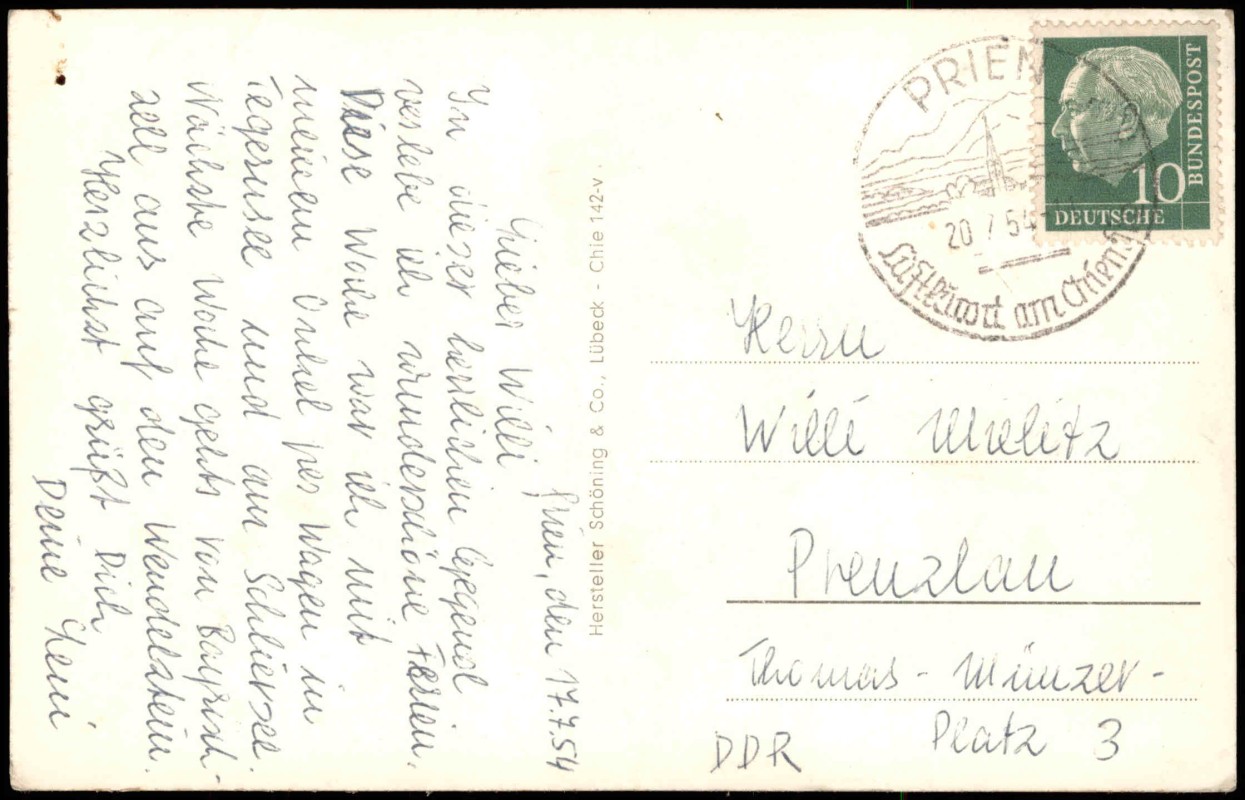 Prien, den 17.7.54
Lieber Willi
In dieser herrlichen Gegend
verlebe ich wunderschöne Ferien.
Diese Woche war ich mit
meinem Onkel per Wagen in
Tegernsee und am Schliersee.
Nächste Woche gehts von Bayrisch-
zell aus auf den Wendelstein.
Herzlichst grüßt Dich
Deine Leni
Hersteller Schöning & Co., Lübeck - Chie 142-v.
PRIEN
20 7 54
Luftkurort am Chiemsee
BUNDESPOST
10
DEUTSCHE
Herrn
Willi Mielitz
Prenzlau
Thomas-Münzer-
Platz 3
DDR